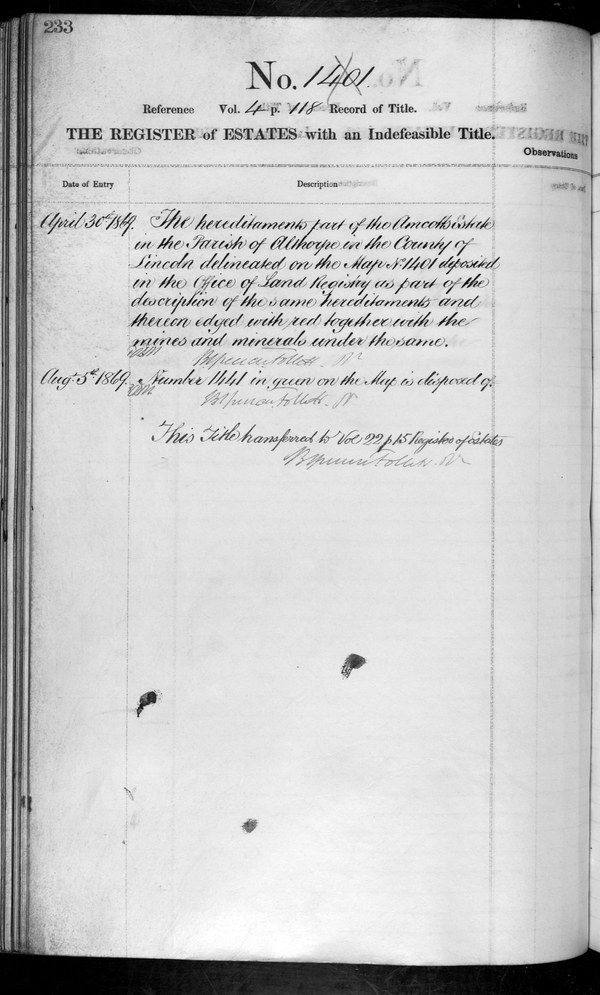 233
No. 1401.
Reference Vol. 4 p. 118 Record of Title.
THE REGISTER of ESTATES with an Indefeasible Title.
Observations
Date of Entry
Description
April 30th 1869. The hereditaments part of the Amcotts Estate
in the Parish of Althorpe in the County of
Lincoln delineated on the Map No 1401 deposited
in the Office of Land Registry as part of the
description of the same hereditaments and
thereon edged with red together with the
mines and minerals under the same.
Augt 5th 1869. Number 1441 in green on the Map is disposed of.
This Title transferred to Vol 22 p 15 Register of Estates